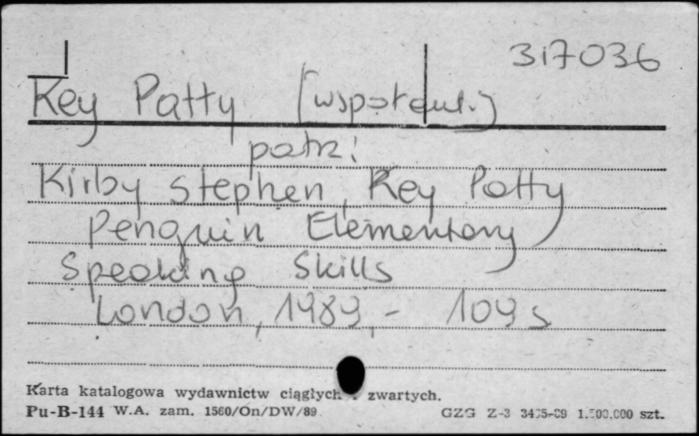 317036
Key Patty (współaut.)
patrz:
Kirby Stephen, Key Patty
Penguin Elementary
Speaking Skills
London, 1989,- 109 s
Karta katalogowa wydawnictw ciągłych zwartych.
Pu-B-144 W.A. zam. 1560/On/DW/89 GZG Z-3 1.500.000 szt.